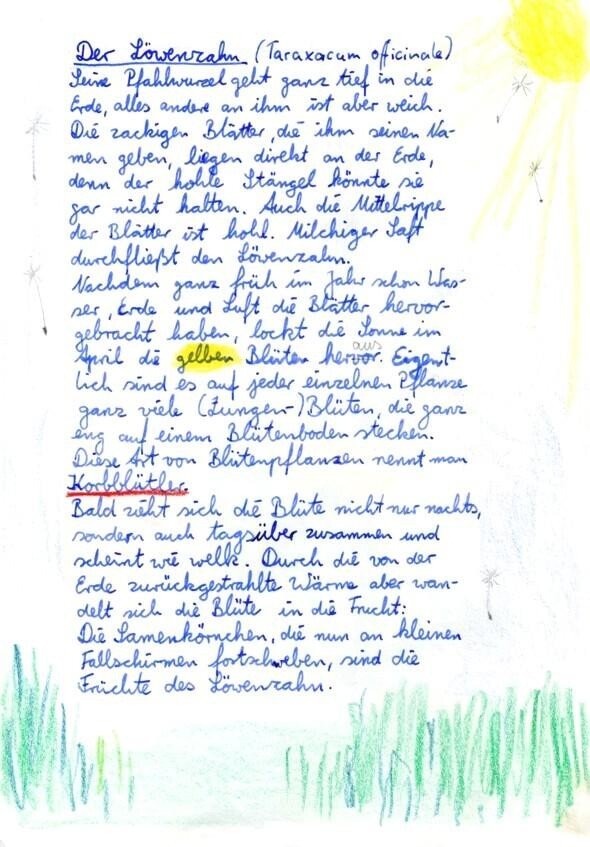 Der Löwenzahn (Taraxacum officinale)
Seine Pfahlwurzel geht ganz tief in die
Erde, alles andere an ihm ist aber weich.
Die zackigen Blätter, die ihm seinen Na-
men geben, liegen direkt an der Erde,
denn der hohle Stängel könnte sie
gar nicht halten. Auch die Mittelrippe
der Blätter ist hohl. Milchiger Saft
durchfließt den Löwenzahn.
Nachdem ganz früh im Jahr schon Was-
ser, Erde und Luft die Blätter hervor-
gebracht haben, lockt die Sonne im
aus
April die gelben Blüten hervor. Eigent-
lich sind es auf jeder einzelnen Pflanze
ganz viele (Zungen-)Blüten, die ganz
eng auf einem Blütenboden stecken.
Diese Art von Blütenpflanzen nennt man
Korbblütler.
Bald zieht sich die Blüte nicht nur nachts,
sondern auch tagsüber zusammen und
scheint wie welk. Durch die von der
Erde zurückgestrahlte Wärme aber wan-
delt sich die Blüte in die Frucht:
Die Samenkörnchen, die nun an kleinen
Fallschirmen fortschweben, sind die
Früchte des Löwenzahn.